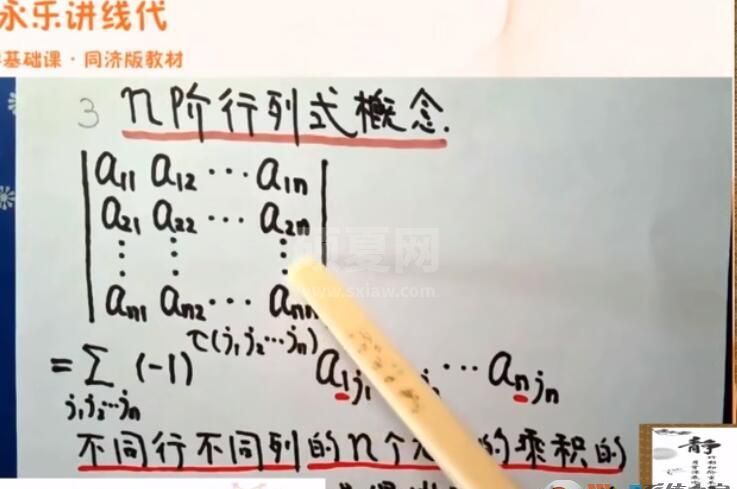 永乐讲线代
基础课·同济版教材
3 n阶行列式概念.
a11 a12 ⋯ a1n
a21 a22 ⋯ a2n
⋮ ⋮ ⋮
an1 an2 ⋯ ann
= Σ (-1) τ(j1j2⋯jn) a1j1 ⋯ anjn
j1j2⋯jn
不同行不同列的n个 的乘积的
硕夏网
www.sxiaw.com
静